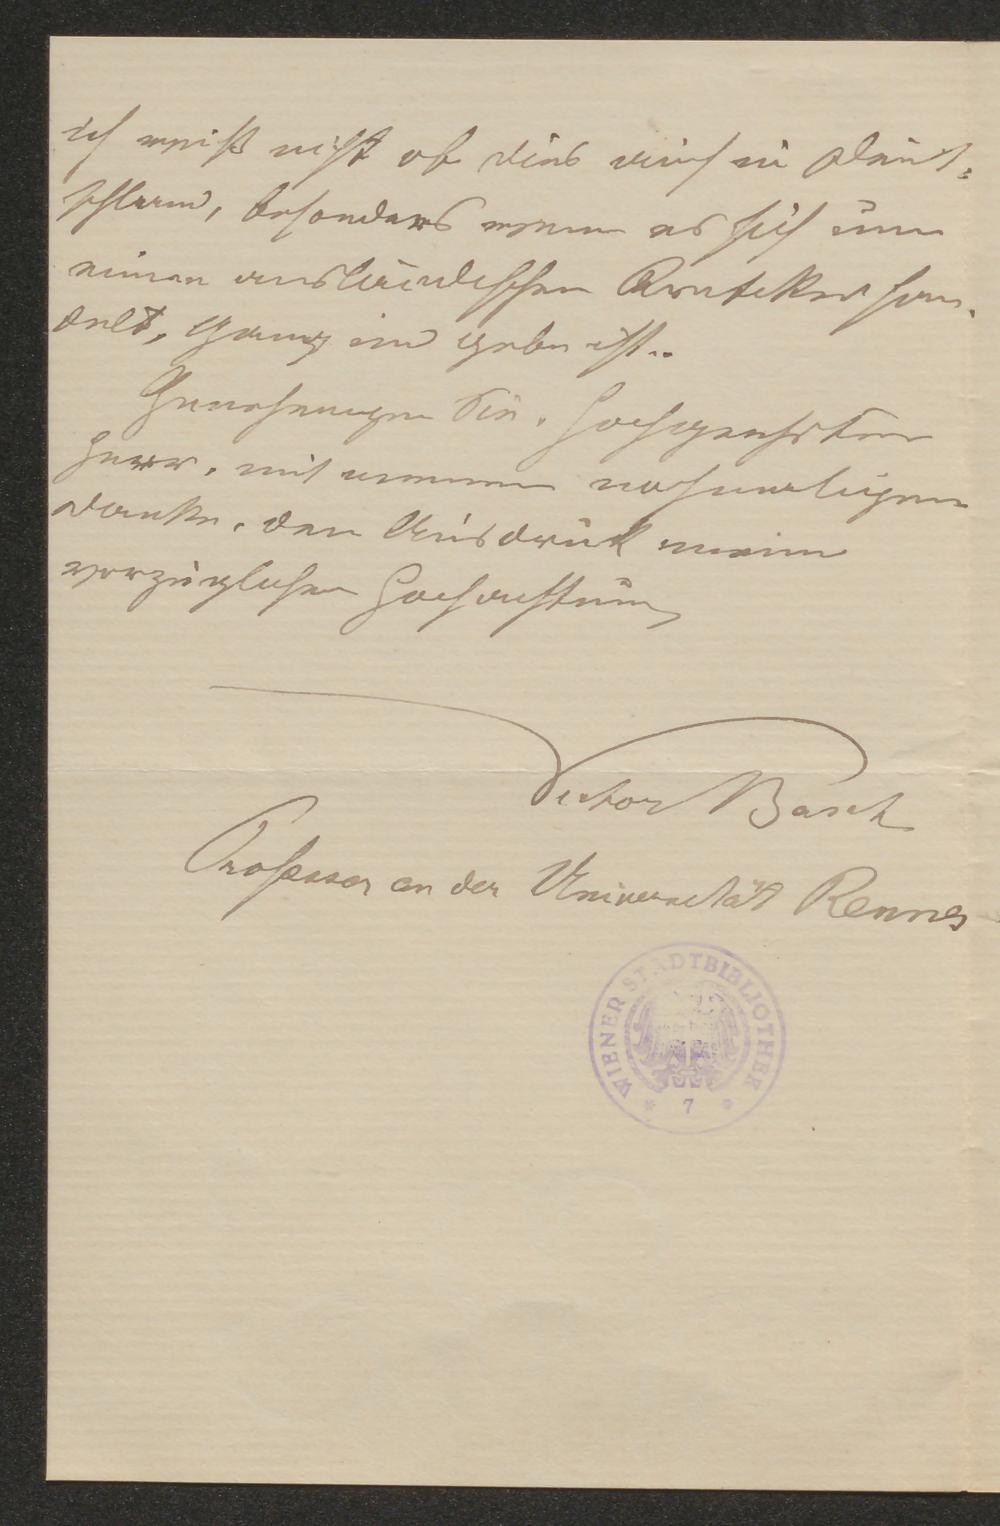 ich weiß nicht ob dies auch in Deut-
schland, besonders wenn es sich um
einen ausländischen Kritiker han-
delt, gang und gebe ist.
Genehmigen Sie, hochgeehrter
Herr, mit meinem nochmaligen
Danke, den Ausdruck meiner
vorzüglichen Hochachtung
Victor Basch
Professor an der Universität Rennes
WIENER STADTBIBLIOTHEK
* 7 *